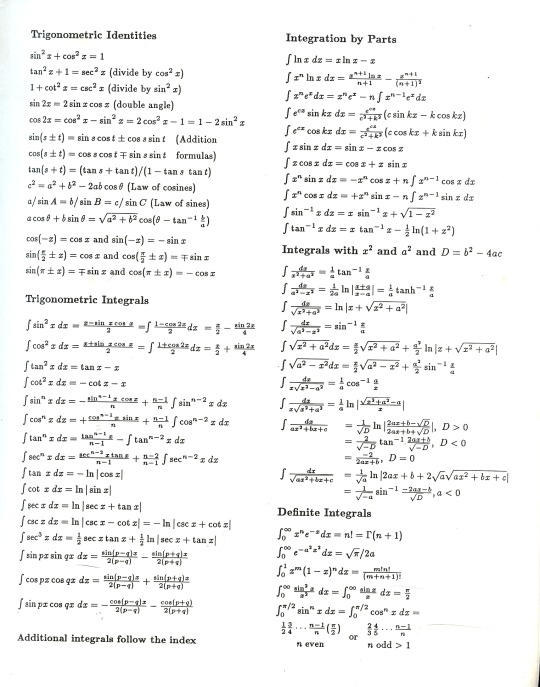 Trigonometric Identities
sin² x + cos² x = 1
tan² x + 1 = sec² x (divide by cos² x)
1 + cot² x = csc² x (divide by sin² x)
sin 2x = 2 sin x cos x (double angle)
cos 2x = cos² x − sin² x = 2 cos² x − 1 = 1 − 2 sin² x
sin(s ± t) = sin s cos t ± cos s sin t (Addition
cos(s ± t) = cos s cos t ∓ sin s sin t formulas)
tan(s + t) = (tan s + tan t)/(1 − tan s tan t)
c² = a² + b² − 2ab cos θ (Law of cosines)
a/sin A = b/sin B = c/sin C (Law of sines)
a cos θ + b sin θ = √(a² + b²) cos(θ − tan⁻¹ b/a)
cos(−x) = cos x and sin(−x) = − sin x
sin(π/2 ± x) = cos x and cos(π/2 ± x) = ∓ sin x
sin(π ± x) = ∓ sin x and cos(π ± x) = − cos x
Trigonometric Integrals
∫ sin² x dx = (x − sin x cos x)/2 = ∫ (1 − cos 2x)/2 dx = x/2 − (sin 2x)/4
∫ cos² x dx = (x + sin x cos x)/2 = ∫ (1 + cos 2x)/2 dx = x/2 + (sin 2x)/4
∫ tan² x dx = tan x − x
∫ cot² x dx = − cot x − x
∫ sinⁿ x dx = − (sinⁿ⁻¹ x cos x)/n + (n−1)/n ∫ sinⁿ⁻² x dx
∫ cosⁿ x dx = + (cosⁿ⁻¹ x sin x)/n + (n−1)/n ∫ cosⁿ⁻² x dx
∫ tanⁿ x dx = (tanⁿ⁻¹ x)/(n−1) − ∫ tanⁿ⁻² x dx
∫ secⁿ x dx = (secⁿ⁻² x tan x)/(n−1) + (n−2)/(n−1) ∫ secⁿ⁻² x dx
∫ tan x dx = − ln |cos x|
∫ cot x dx = ln |sin x|
∫ sec x dx = ln |sec x + tan x|
∫ csc x dx = ln |csc x − cot x| = − ln |csc x + cot x|
∫ sec³ x dx = 1/2 sec x tan x + 1/2 ln |sec x + tan x|
∫ sin px sin qx dx = sin(p−q)x/2(p−q) − sin(p+q)x/2(p+q)
∫ cos px cos qx dx = sin(p−q)x/2(p−q) + sin(p+q)x/2(p+q)
∫ sin px cos qx dx = − cos(p−q)x/2(p−q) − cos(p+q)/2(p+q)
Additional integrals follow the index
Integration by Parts
∫ ln x dx = x ln x − x
∫ xⁿ ln x dx = (xⁿ⁺¹ ln x)/(n+1) − xⁿ⁺¹/(n+1)²
∫ xⁿeˣdx = xⁿeˣ − n ∫ xⁿ⁻¹eˣdx
∫ eᶜˣ sin kx dx = eᶜˣ/(c²+k²) (c sin kx − k cos kx)
∫ eᶜˣ cos kx dx = eᶜˣ/(c²+k²) (c cos kx + k sin kx)
∫ x sin x dx = sin x − x cos x
∫ x cos x dx = cos x + x sin x
∫ xⁿ sin x dx = −xⁿ cos x + n ∫ xⁿ⁻¹ cos x dx
∫ xⁿ cos x dx = +xⁿ sin x − n ∫ xⁿ⁻¹ sin x dx
∫ sin⁻¹ x dx = x sin⁻¹ x + √(1 − x²)
∫ tan⁻¹ x dx = x tan⁻¹ x − 1/2 ln(1 + x²)
Integrals with x² and a² and D = b² − 4ac
∫ dx/(x²+a²) = 1/a tan⁻¹ x/a
∫ dx/(a²−x²) = 1/2a ln |(x+a)/(x−a)| = 1/a tanh⁻¹ x/a
∫ dx/√(x²+a²) = ln |x + √(x² + a²)|
∫ dx/√(a²−x²) = sin⁻¹ x/a
∫ √(x² + a²)dx = x/2 √(x² + a²) + a²/2 ln |x + √(x² + a²)|
∫ √(a² − x²)dx = x/2 √(a² − x²) + a²/2 sin⁻¹ x/a
∫ dx/x√(x²−a²) = 1/a cos⁻¹ a/x
∫ dx/x√(x²+a²) = 1/a ln |(√(x²+a²)−a)/x|
∫ dx/(ax²+bx+c) = 1/√D ln |(2ax+b−√D)/(2ax+b+√D)|, D > 0
= 2/√−D tan⁻¹ (2ax+b)/√−D, D < 0
= −2/(2ax+b), D = 0
∫ dx/√(ax²+bx+c) = 1/√a ln |2ax + b + 2√a√(ax² + bx + c)|
= 1/√−a sin⁻¹ (−2ax−b)/√D, a < 0
Definite Integrals
∫₀^∞ xⁿe⁻ˣdx = n! = Γ(n + 1)
∫₀^∞ e^(−a²x²)dx = √π/2a
∫₀¹ xᵐ(1 − x)ⁿdx = m!n!/(m+n+1)!
∫₀^∞ (sin² x)/x² dx = ∫₀^∞ (sin x)/x dx = π/2
∫₀^(π/2) sinⁿ x dx = ∫₀^(π/2) cosⁿ x dx =
1/2 3/4 ⋯ (n−1)/n (π/2) or 2/3 4/5 ⋯ (n−1)/n
n even n odd > 1